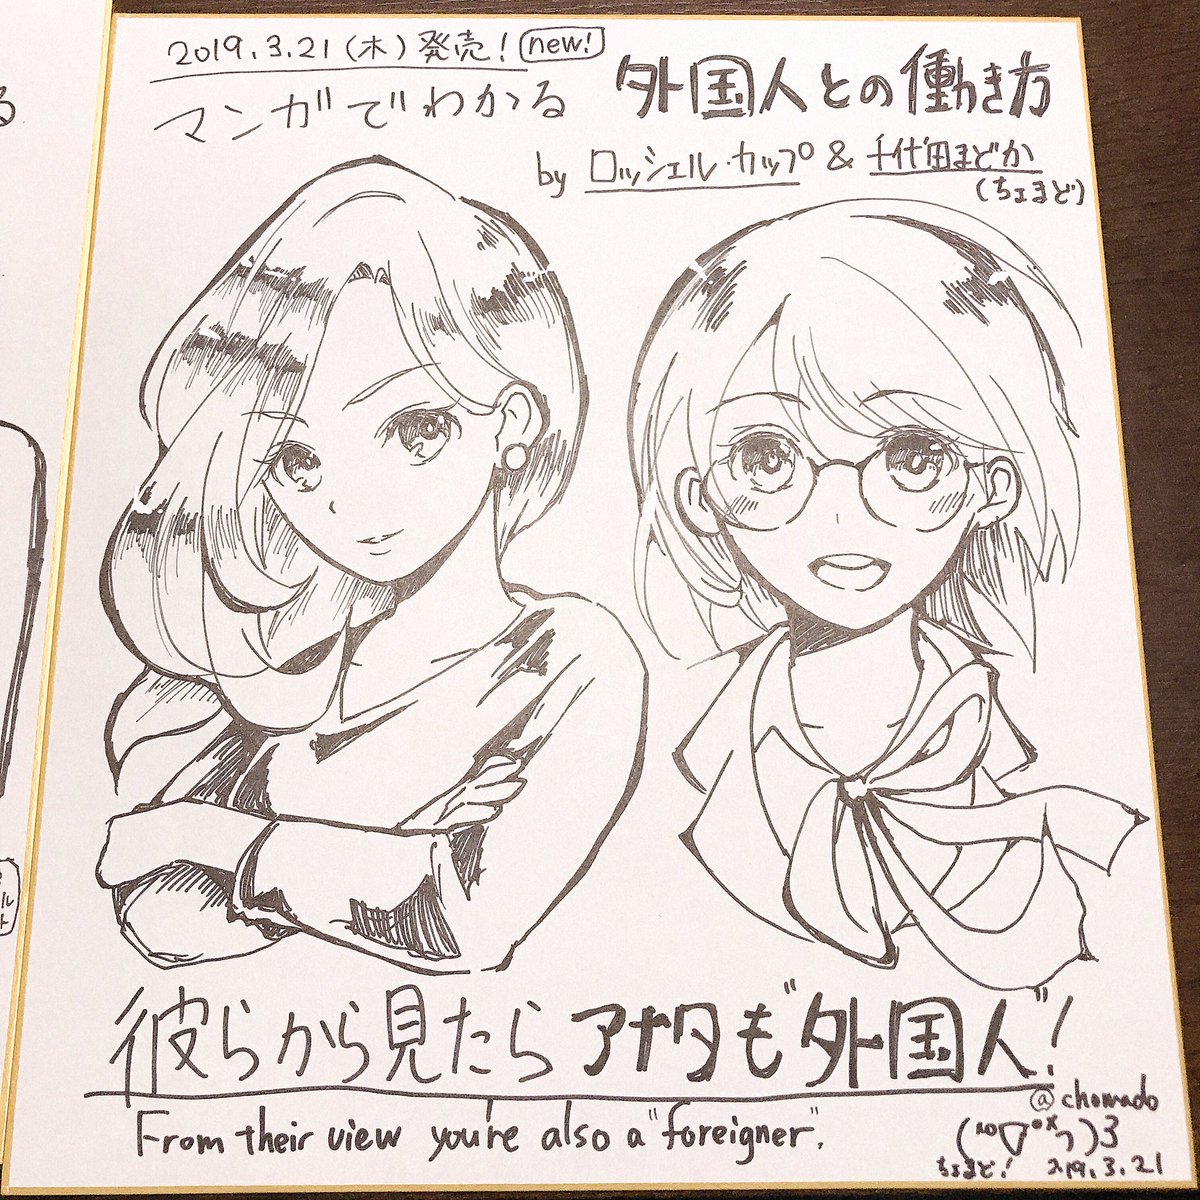 2019.3.21(木)発売! new!
マンガでわかる 外国人との働き方
by ロッシェル・カップ & 千代田まどか
(ちょまど)
彼らから見たら アナタも"外国人"!
From their view you're also a "foreigner".
@chomado
ちょまど! 2019.3.21
る
ル
ト